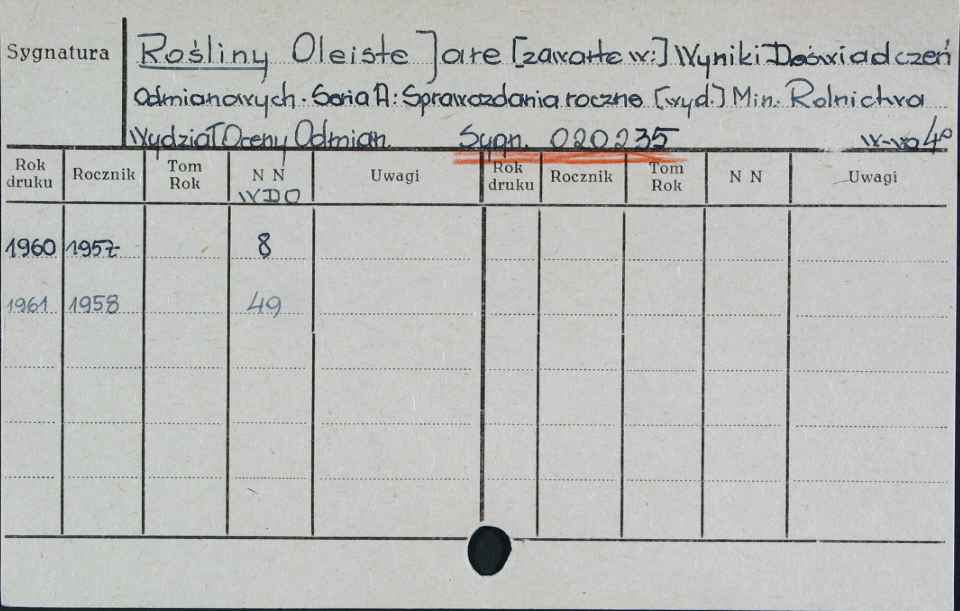 Sygnatura
Rośliny Oleiste Jare [zawarte w:] Wyniki Doświadczeń
Odmianowych. Seria A: Sprawozdania roczne [wyd.] Min. Rolnictwa
Wydział Oceny Odmian. Sygn. 020235 W-wa 4°
Rok druku Rocznik Tom Rok N N Uwagi Rok druku Rocznik Tom Rok N N Uwagi
WDO
1960 1957 8
1961 1958 49